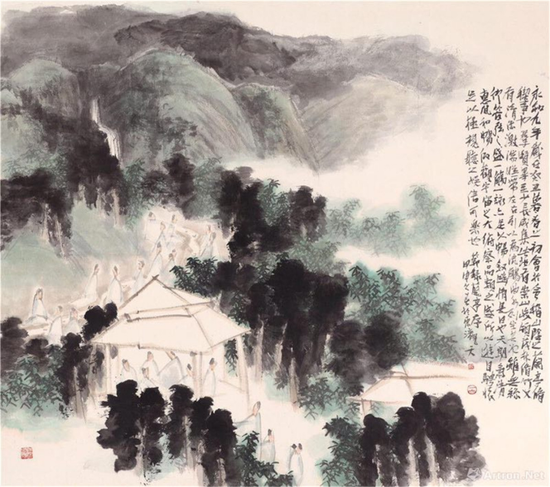 永和九年歲在癸丑暮春之初會於會稽山陰之蘭亭脩
禊事也群賢畢至少長咸集此地有崇山峻領茂林脩竹又
有清流激湍暎帶左右引以為流觴曲水列坐其次雖無絲
竹管弦之盛一觴一詠亦足以暢敘幽情是日也天朗氣清
惠風和暢仰觀宇宙之大俯察品類之盛所以遊目騁懷
足以極視聽之娛信可樂也
Artron.Net